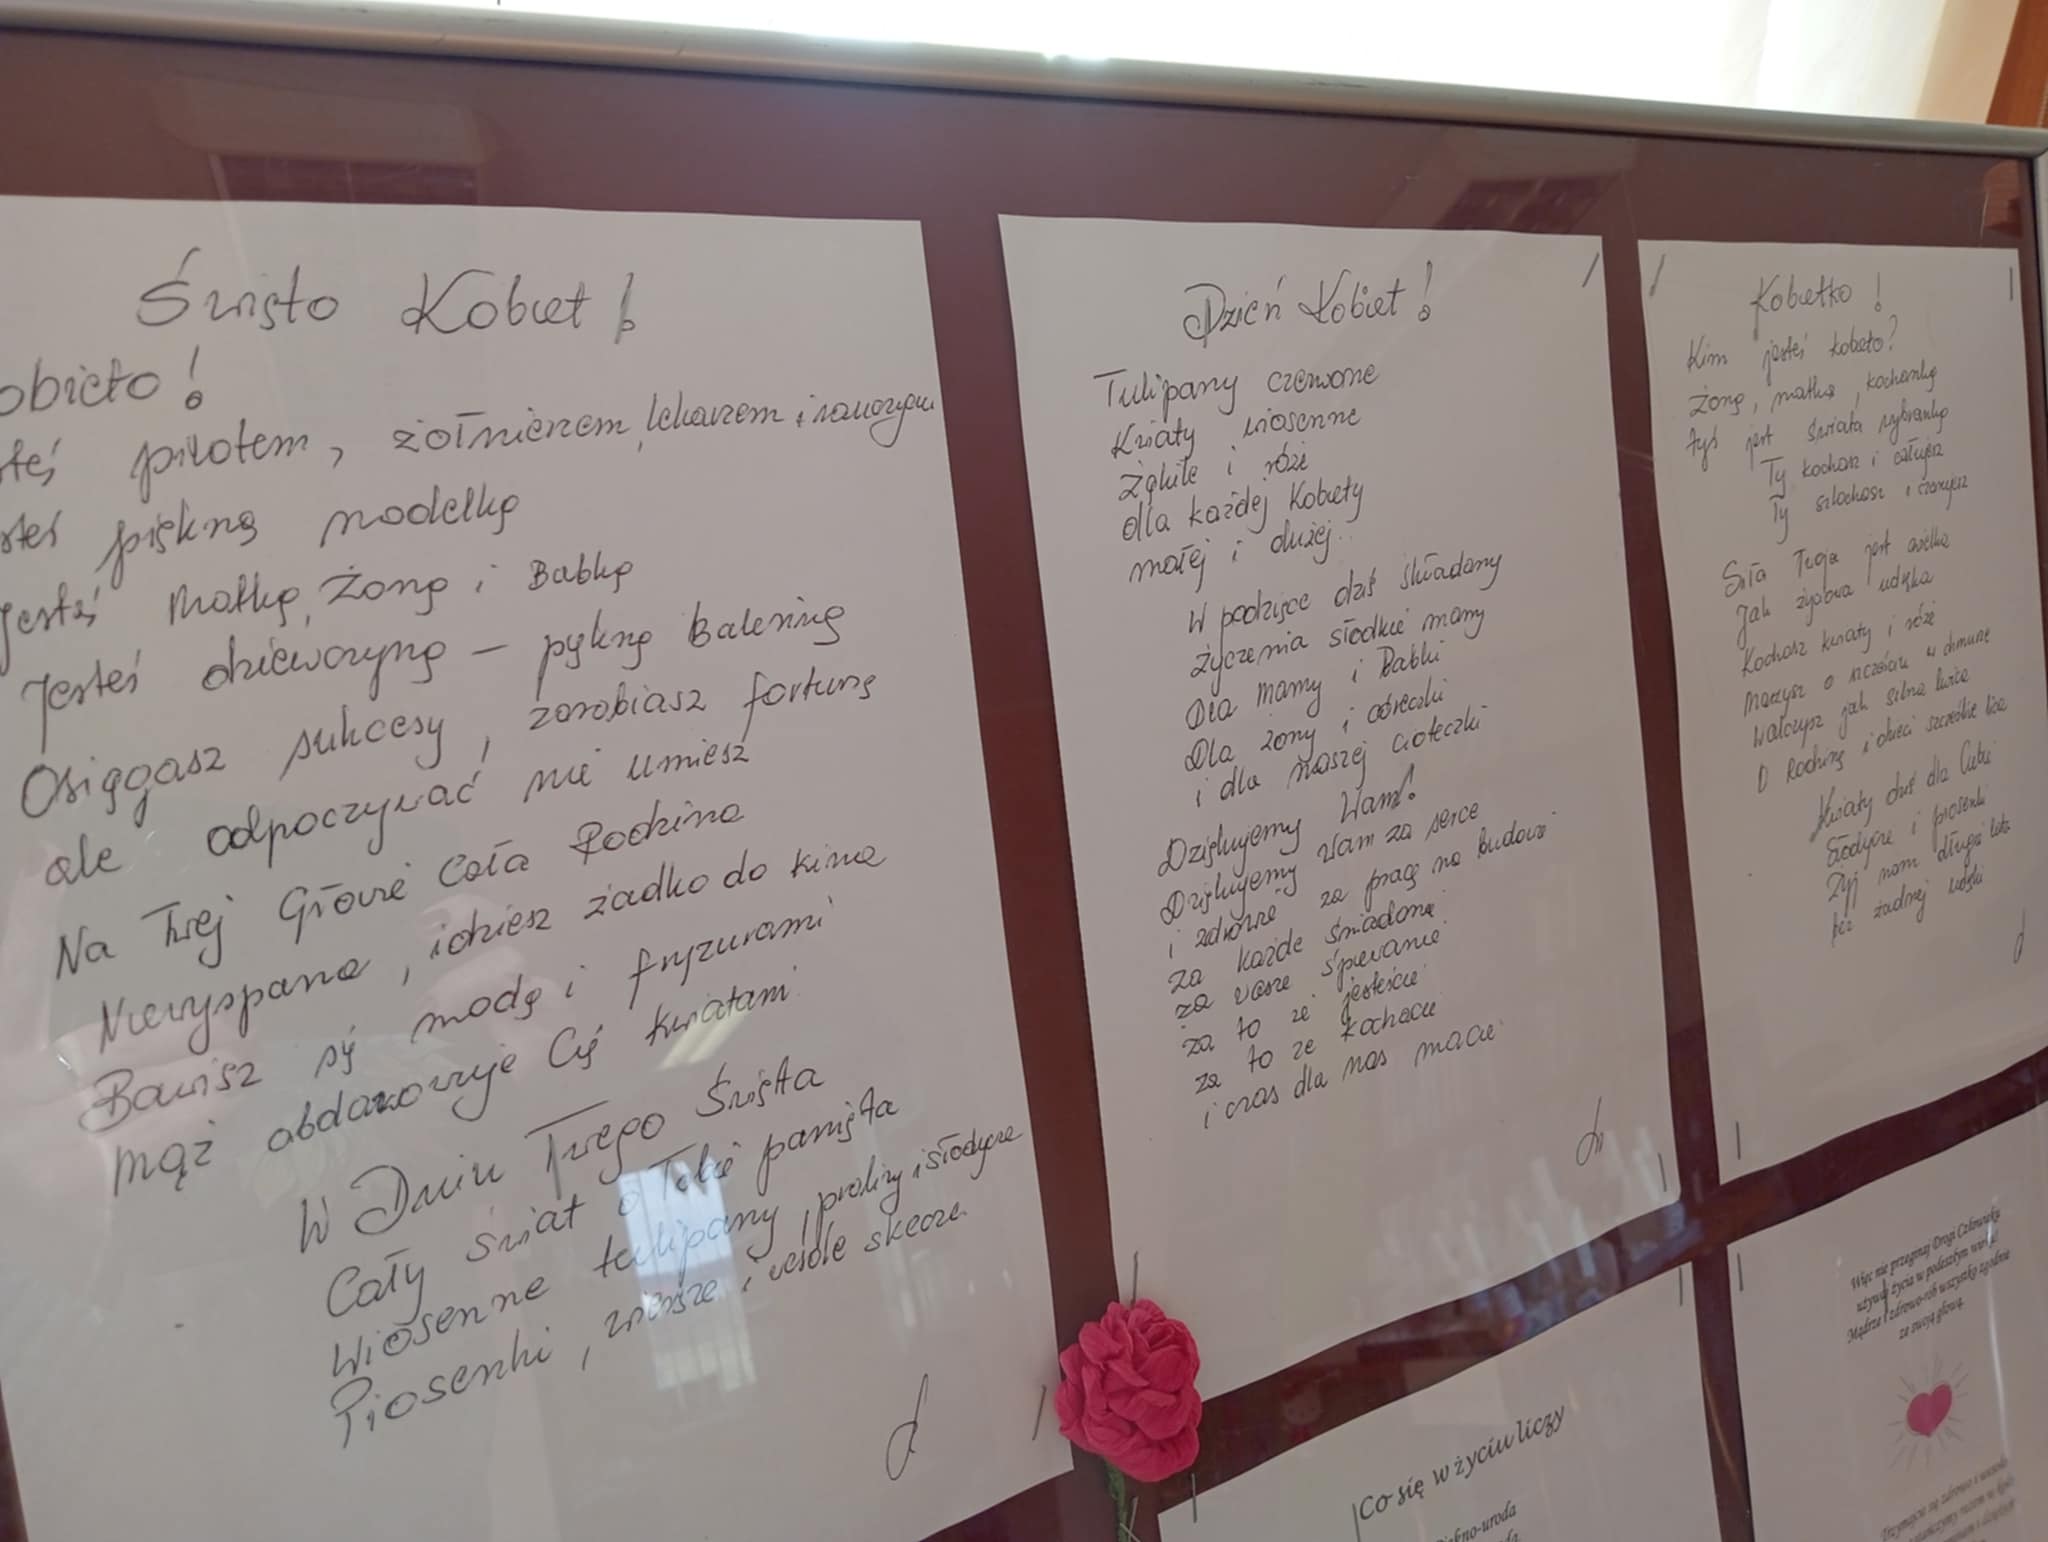 Święto Kobiet!
obieto!
teś pilotem, żołnierzem, lekarzem i
steś piękną modelką
Jesteś Matką, Żoną i Babką
Jesteś dziewczyną – pyękną Baleriną
Osiągasz sukcesy, zarabiasz fortunę
ale odpoczywać nie umiesz
Na Twej Głowie Cała Rodzina
Niewyspana, idziesz żadko do kina
Bawisz sę modą i fryzurami
mąż abdarowuje Cię kwiatami.
W Dniu Twego Święta
Cały świat o Tobie pamięta
Wiosenne tulipany, praliny i słodycze
Piosenki, wiersze i wesołe skecze.
Dzień Kobiet!
Tulipany czerwone
Kwiaty wiosenne
Żąkile i róże
dla każdej Kobiety
małej i dużej..
W podzięce dziś składamy
życzenia słodkie mamy
Dla mamy i Babki
Dla żony i córeczki
i dla naszej cioteczki
Dziękujemy Wam!
Dziękujemy Wam za serce
i zdrowie za pracę na budowie
za każde śniadanie
za wasze śpiewanie
za to że jesteście
za to że kochacie
i czas dla nas macie
Kobietko!
Kim jesteś kobieto?
Żoną, matką, kochanką
tyś jest świata wybranką
Ty kochasz i całujesz
Ty szlochasz i czarujesz
Siła Twoja jest wielka
Jak żywa
Kochasz kwiaty i róże
Marzysz o szczęściu w chmurze
Walczysz jak silna lwica
O Rodzinę i dzieci szczęśliwe lica
Kwiaty dziś dla Ciebie
Słodycze i piosenki
Żyj nam długie lata
bez żadnej
Więc nie przegapaj Drogi Człowieku
używaj życia w podeszłym wieku
Mądrze i zdrowo-rób wszystko zgodnie
ze swoją głową.
Co się w życiu liczy
uroda